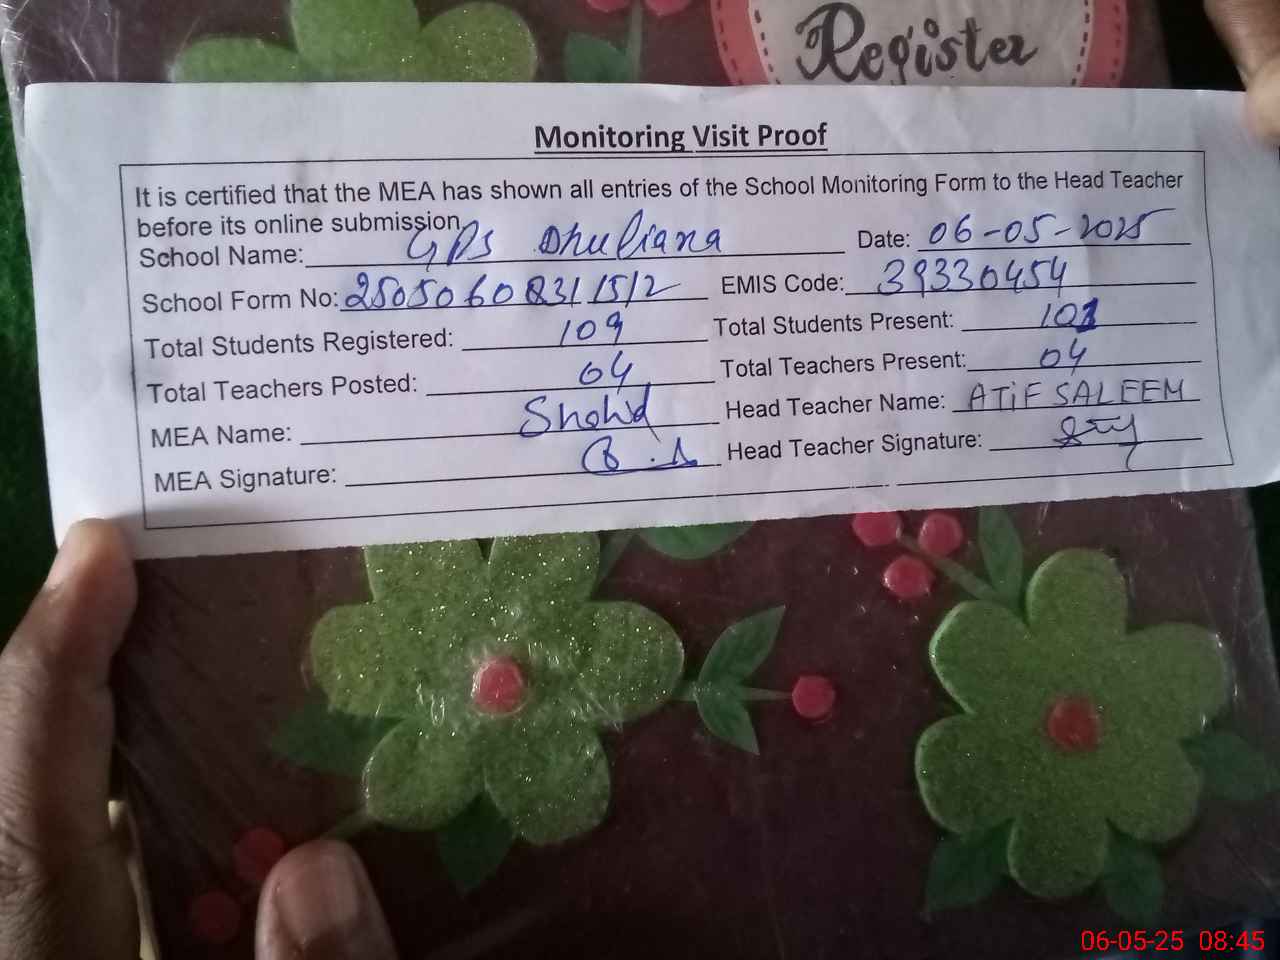 Register
Monitoring Visit Proof
It is certified that the MEA has shown all entries of the School Monitoring Form to the Head Teacher
before its online submission.
School Name: GPS Dhuliana Date: 06-05-2025
School Form No: EMIS Code: 39330454
Total Students Registered: 109 Total Students Present: 101
Total Teachers Posted: 04 Total Teachers Present: 04
MEA Name: Shahid Head Teacher Name: ATiF SALEEM
MEA Signature: Head Teacher Signature:
06-05-25 08:45